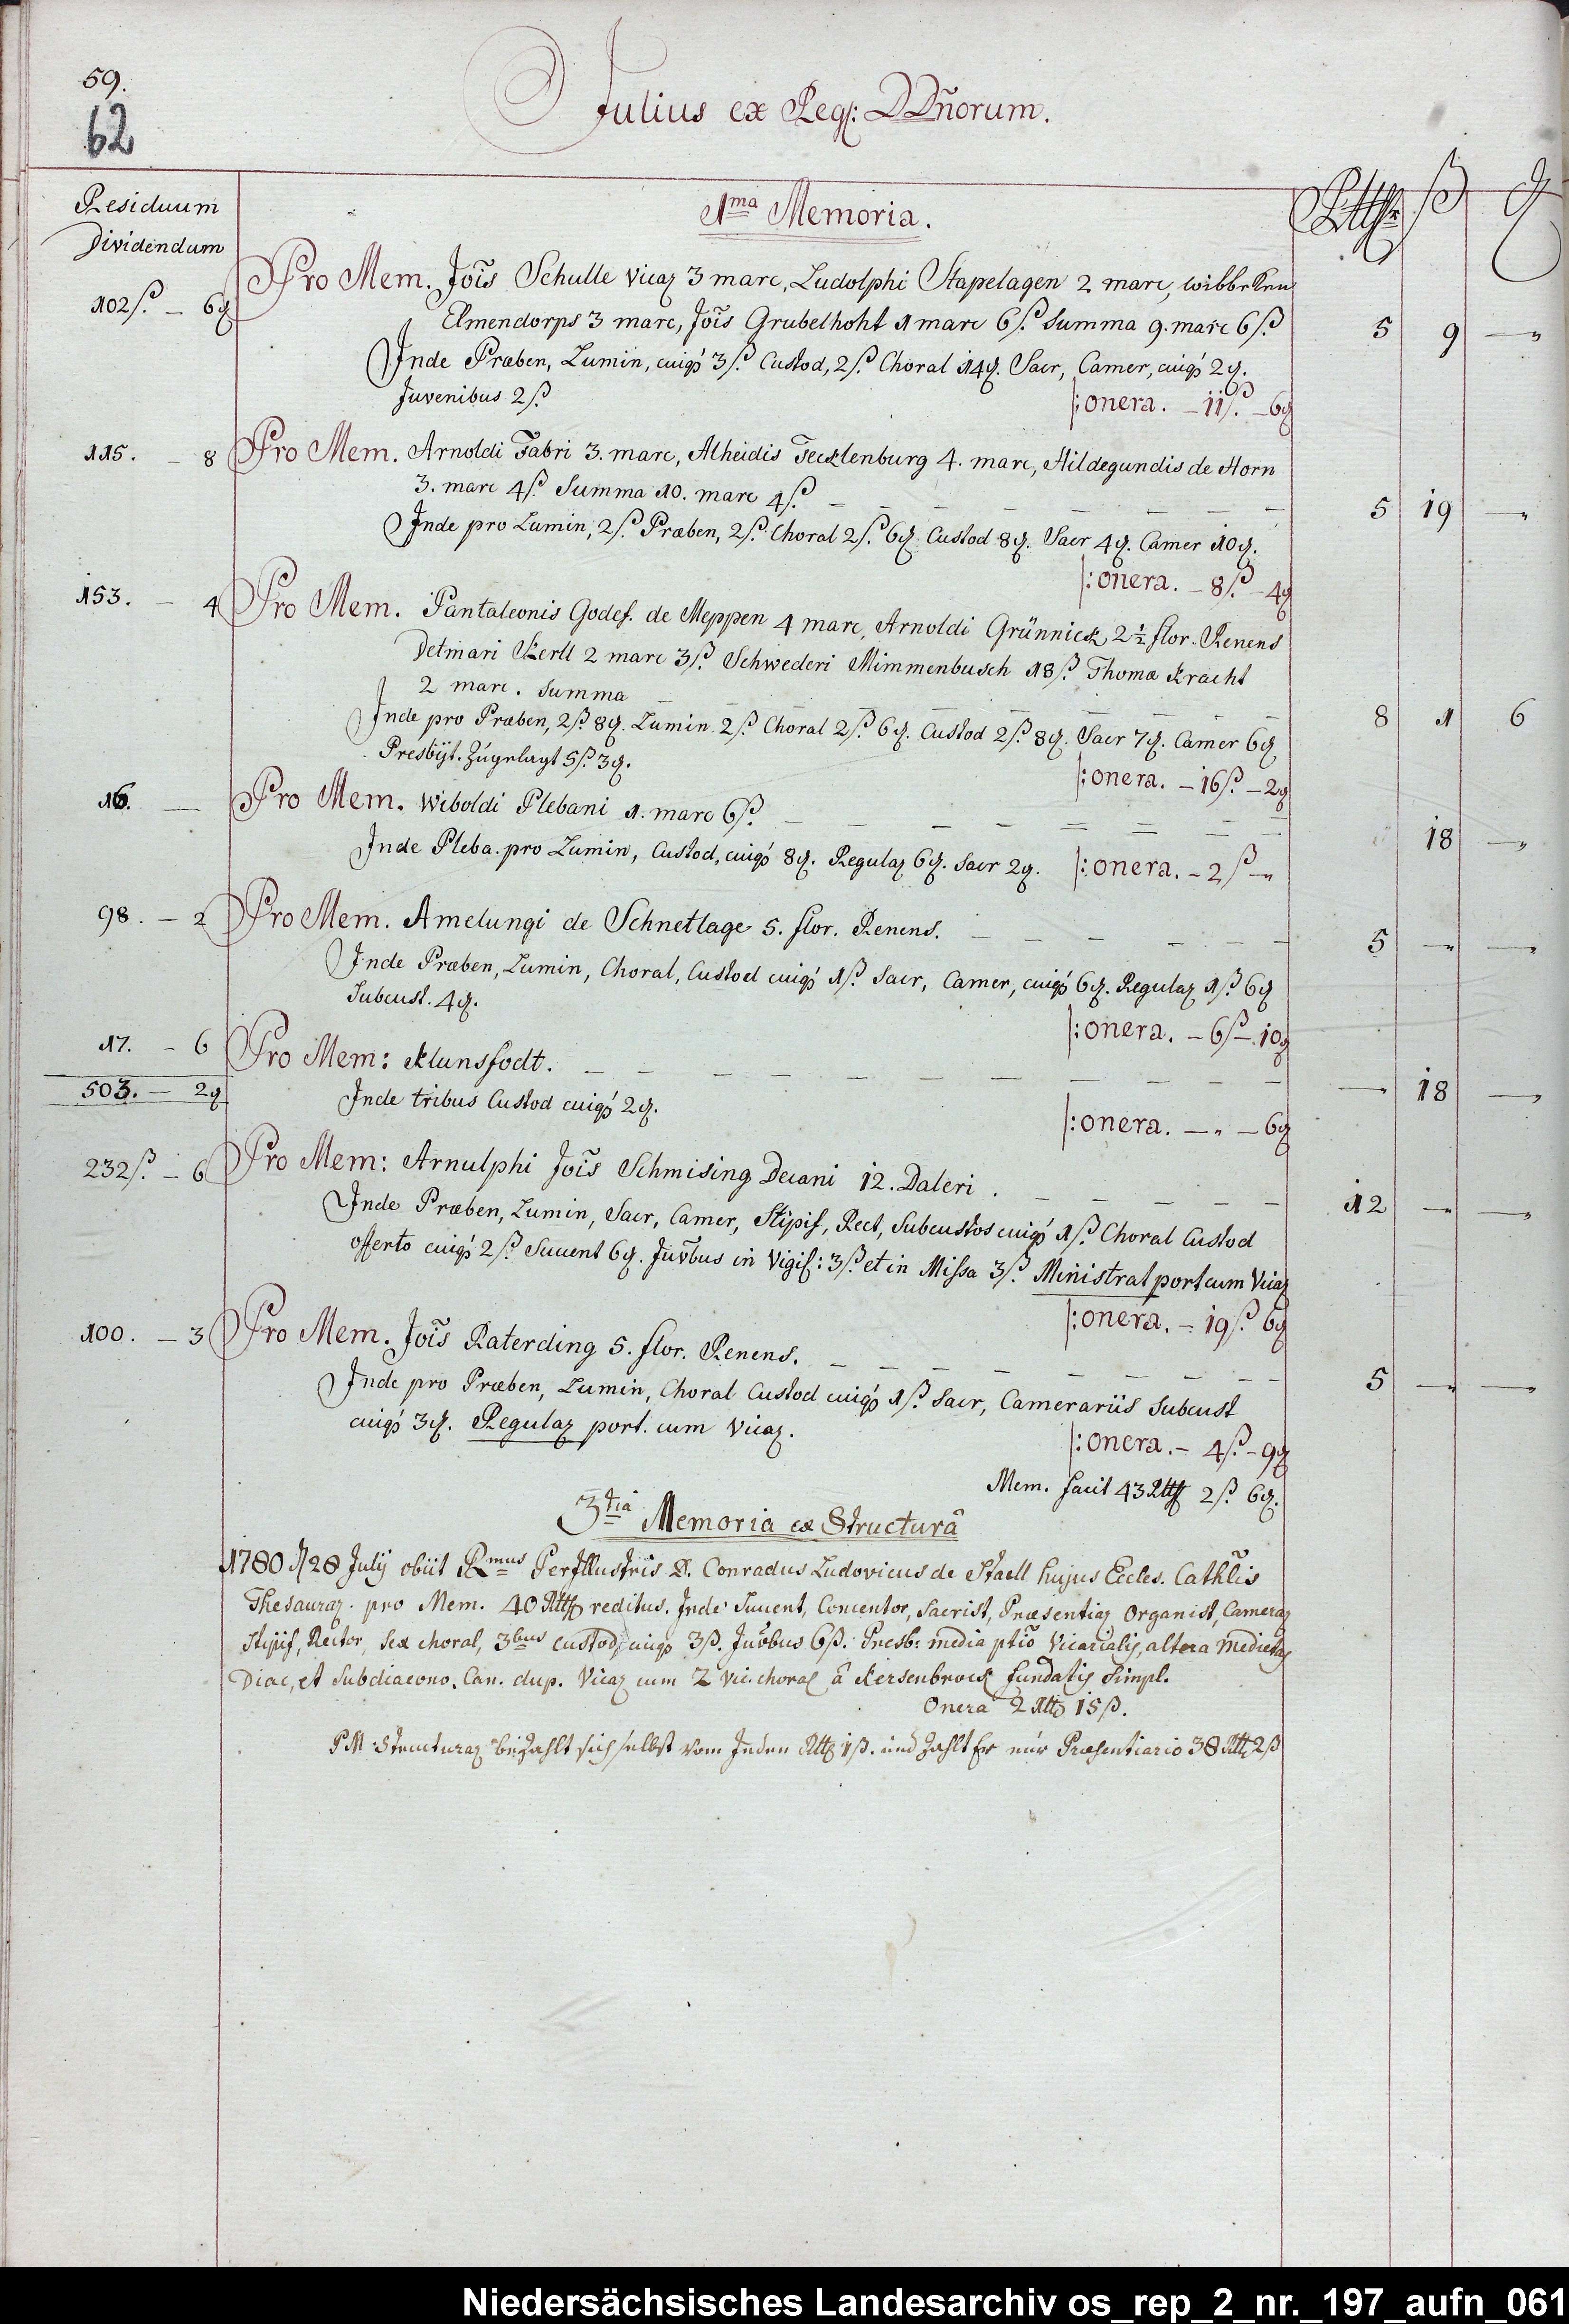 59.
62
Julius ex Reg: DDn̄orum.
Residuum
Dividendum
1ma Memoria.
Rthlr ß ₰
102ß. – 6₰
Pro Mem. Jōis Schulle Vicar 3 marc, Ludolphi Stapelagen 2 marc, Wibbeken
Elmendorps 3 marc, Jōis Grubelhoht 1 marc 6ß. Summa 9. marc 6ß. 5 9 –
Inde Præben, Lumin, cuiq 3ß. Custod, 2ß. Choral 14₰. Sacr, Camer, cuiq 2₰.
Juvenibus 2ß. |: onera. – 11ß. – 6₰
115. – 8
Pro Mem. Arnoldi Fabri 3. marc, Alheidis Tecklenburg 4. marc, Hildegundis de Horn
3. marc 4ß. Summa 10. marc 4ß. – – – – – – – 5 19 –
Inde pro Lumin, 2ß. Præben, 2ß. Choral 2ß. 6₰. Custod 8₰. Sacr 4₰. Camer 10₰.
|: onera. – 8ß. – 4₰
153. – 4
Pro Mem. Pantaleonis Godef. de Meppen 4 marc, Arnoldi Grünnick 2½ flor. Renens
Detmari Kerll 2 marc 3ß. Schwederi Mimmenbusch 18ß. Thomæ Kracht
2 marc. Summa – – – – – – – 8 1 6
Inde pro Præben, 2ß. 8₰. Lumin. 2ß. Choral 2ß. 6₰. Custod 2ß. 8₰. Sacr 7₰. Camer 6₰
Presbÿt. Zugelagt 5ß. 3₰. |: onera. – 16ß. – 2₰
16. –
Pro Mem. Wiboldi Plebani 1. marc 6ß. – – – – – – – 18 –
Inde Pleba. pro Lumin, Custod, cuiq 8₰. Regular 6₰. Sacr 2₰. |: onera. – 2ß –
98. – 2
Pro Mem. Amelungi de Schnetlage 5. flor. Renens. – – – – – – 5 – –
Inde Præben, Lumin, Choral, Custod cuiq 1ß. Sacr, Camer, cuiq 6₰. Regular 1ß. 6₰
Subcust. 4₰. |: onera. – 6ß – 10₰
17. – 6
Pro Mem: Klunsfodt. – – – – – – – – – 18 –
503. – 2₰
Inde tribus Custod cuiq 2₰. |: onera. – „ – 6₰
232ß. – 6
Pro Mem: Arnulphi Jōis Schmising Decani 12. Daleri. – – – – – 12 – –
Inde Præben, Lumin, Sacr, Camer, Stipif, Rect, Subcustos cuiq 1ß. Choral Custod
offerto cuiq 2ß. Succent 6₰. Juv̄bus in Vigil: 3ß. et in Missa 3ß. Ministrat port cum Vicar
|: onera. – 19ß. 6₰
100. – 3
Pro Mem. Jōis Raterding 5. flor. Renens. – – – – – – – – 5 – –
Inde pro Præben, Lumin, Choral Custod cuiq 1ß. Sacr, Camerariis Subcust
cuiq 3₰. Regular port. cum Vicar. |: onera. – 4ß. – 9₰
Mem. facit 43 Rth 2ß. 6₰.
3tia Memoria ex Structurâ
1780 28 Julij obiit Rmus Perillustris D. Conradus Ludovicus de Staell hujus Eccles. Cathlis
Thesaurar. pro Mem. 40 Rth reditus. Inde Succent, Concentor, Sacrist, Præsentiar Organist, Camerar
Stipif, Rector, Sex choral, 3bus custod, cuiq 3ß. Juv̄bus 6ß. Presb: media ptio Vicarialis, altera medietas
Diac, et Subdiacono. Can. dup. Vicar cum 2 Vic. choral â Kersenbrock fundatis Simpl.
Onera 2 Rth 15ß.
PM: Structurar bezahlt sich selbst vom Jeden Rth 1ß. und Zahlt Er nur Præsentiario 38 Rth 2ß
Niedersächsisches Landesarchiv os_rep_2_nr._197_aufn_061